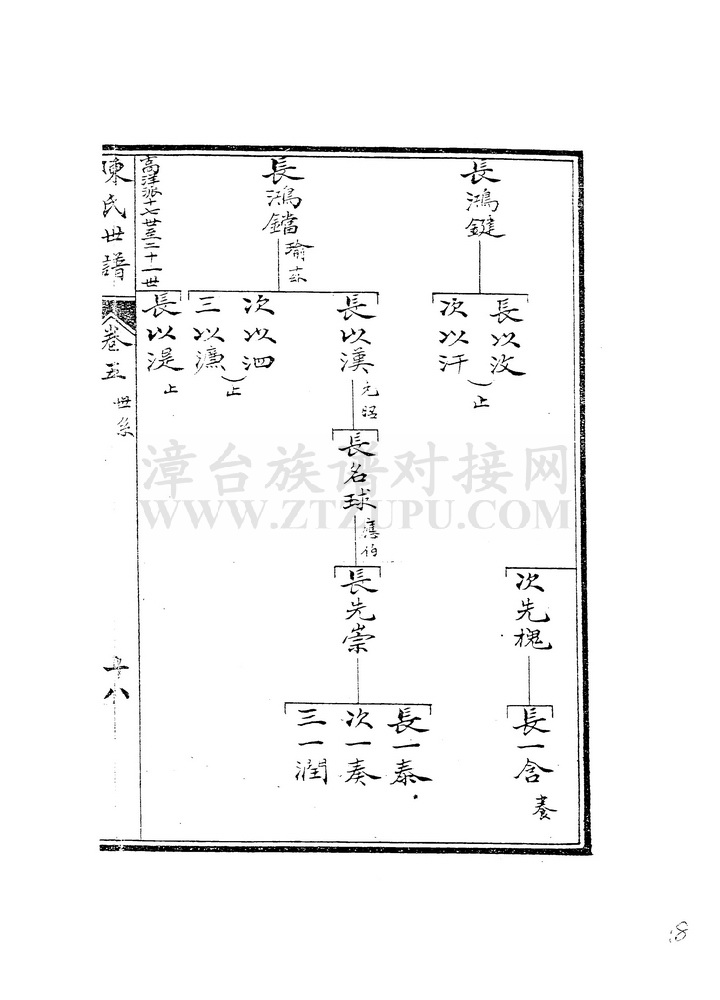 長鴻鍵
長以汶
次以汗
（止
次先槐
長一含
養
長鴻鐺
瑜
長以漢
元昭
次以泗
三以濂
（止
長名球
應伯
長先崇
長一泰
次一奏
三一潤
長以湜
止
高洼派十七世至二十一世
陳氏世譜
卷五
世系
十八
漳台族谱对接网
WWW.ZTZUPU.COM
8